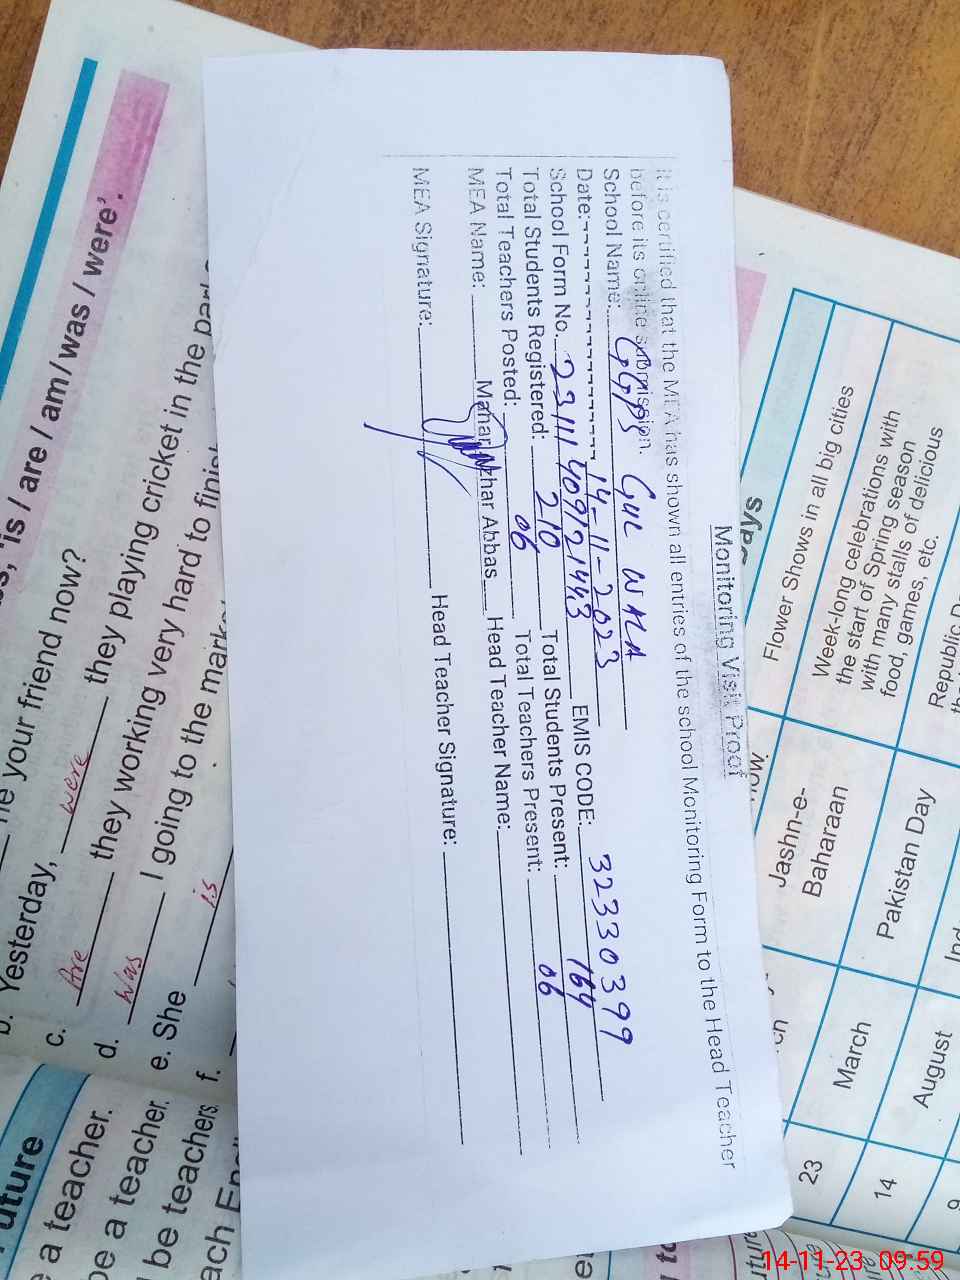 Monitoring Visit Proof
It is certified that the MEA has shown all entries of the school Monitoring Form to the Head Teacher
before its online submission.
School Name: GGPS GUL WALA
Date: 14-11-2023 EMIS CODE: 32330399
School Form No. 23111409121443
Total Students Registered: 210 Total Students Present: 164
Total Teachers Posted: 06 Total Teachers Present: 06
MEA Name: Mahar Abbas Head Teacher Name:
MEA Signature: Head Teacher Signature:
'is / are / am / was / were'.
your friend now?
b. Yesterday, were they playing cricket in the
c. Are they working very hard to
d. Was I going to the
e. She is
f.
uture
a teacher.
be a teacher.
be teachers.
Flower Shows in all big cities
Week-long celebrations with
the start of Spring season
with many stalls of delicious
food, games, etc.
Jashn-e-
Baharaan
March
23
Republic
Pakistan Day
August
14
14-11-23 09:59